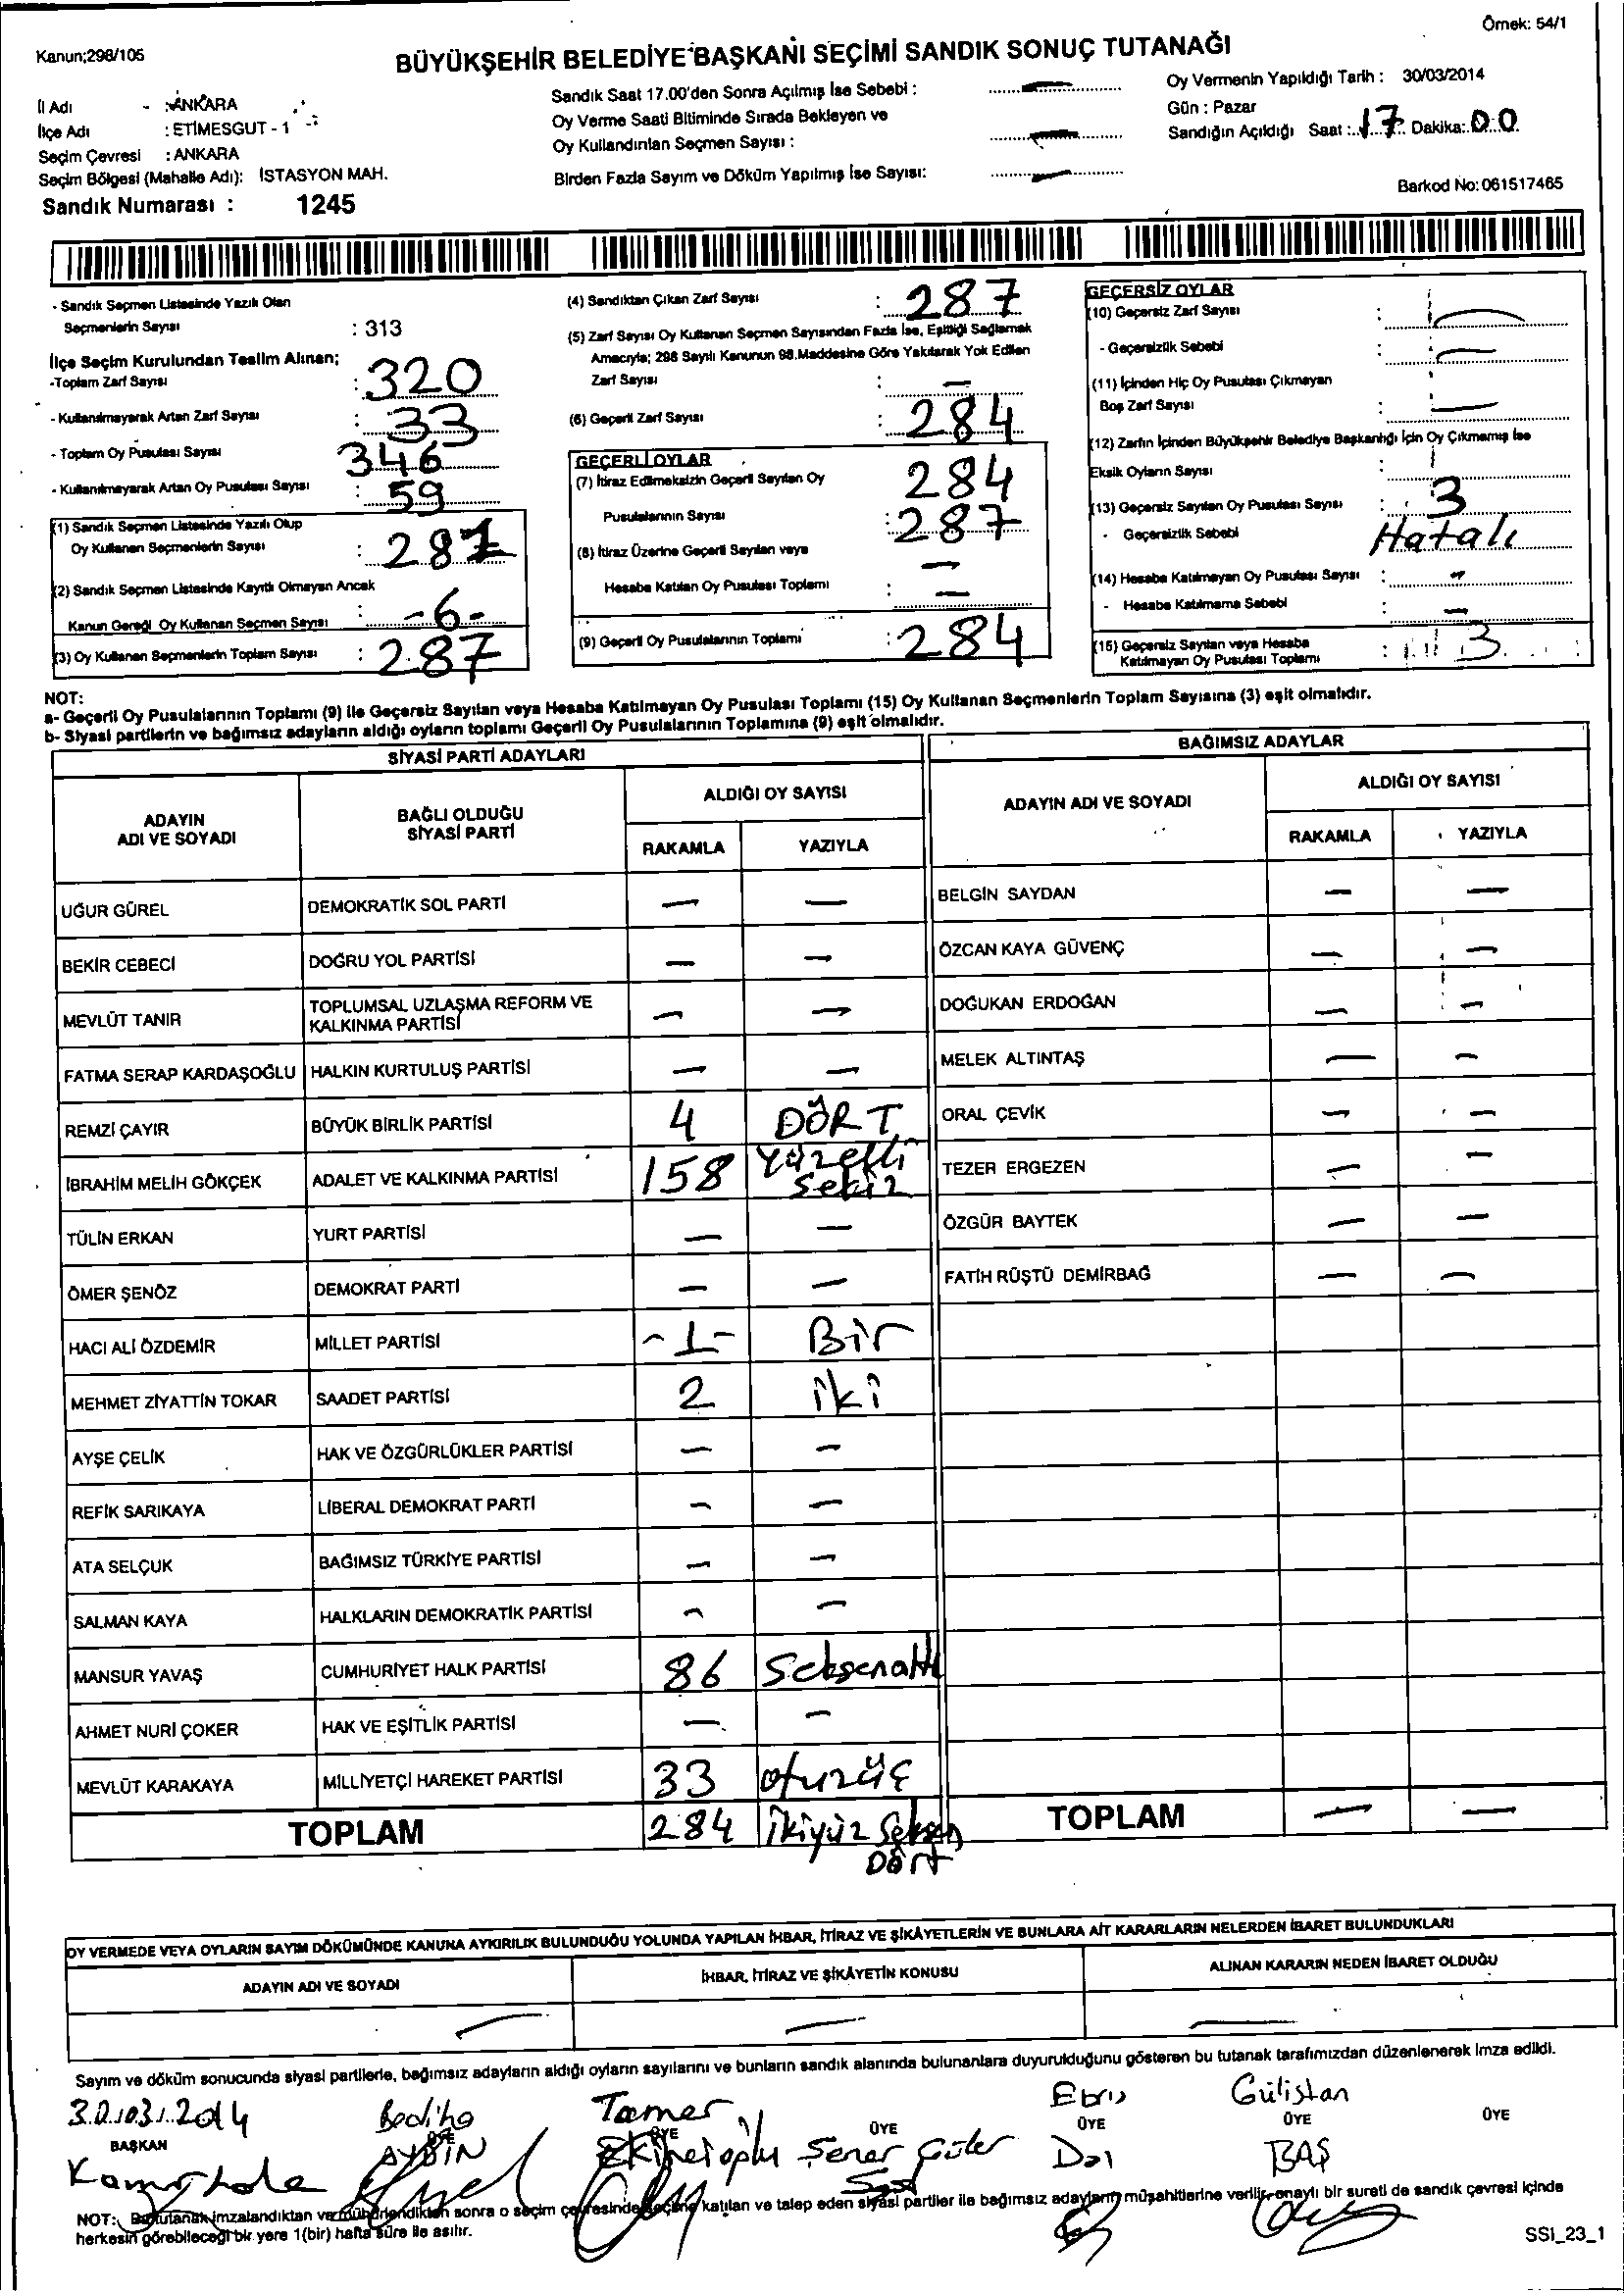 Örnek: 54/1
Kanun;298/105
BÜYÜKŞEHİR BELEDİYE BAŞKANI SEÇİMİ SANDIK SONUÇ TUTANAĞI
İl Adı : ANKARA
İlçe Adı : ETİMESGUT - 1
Seçim Çevresi : ANKARA
Seçim Bölgesi (Mahalle Adı): İSTASYON MAH.
Sandık Numarası : 1245
Sandık Saat 17.00'den Sonra Açılmış İse Sebebi : —
Oy Verme Saati Bitiminde Sırada Bekleyen ve
Oy Kullandırılan Seçmen Sayısı : —
Birden Fazla Sayım ve Döküm Yapılmış İse Sayısı: —
Oy Vermenin Yapıldığı Tarih : 30/03/2014
Gün : Pazar
Sandığın Açıldığı Saat : 17 Dakika: 00
Barkod No: 061517465
- Sandık Seçmen Listesinde Yazılı Olan
Seçmenlerin Sayısı : 313
İlçe Seçim Kurulundan Teslim Alınan;
-Toplam Zarf Sayısı : 320
- Kullanılmayarak Artan Zarf Sayısı : 33
- Toplam Oy Pusulası Sayısı 346
- Kullanılmayarak Artan Oy Pusulası Sayısı : 59
(1) Sandık Seçmen Listesinde Yazılı Olup
Oy Kullanan Seçmenlerin Sayısı : 287
(2) Sandık Seçmen Listesinde Kayıtlı Olmayan Ancak
Kanun Gereği Oy Kullanan Seçmen Sayısı : -6-
(3) Oy Kullanan Seçmenlerin Toplam Sayısı : 287
(4) Sandıktan Çıkan Zarf Sayısı : 287
(5) Zarf Sayısı Oy Kullanan Seçmen Sayısından Fazla İse, Eşitliği Sağlamak
Amacıyla; 298 Sayılı Kanunun 98.Maddesine Göre Yakılarak Yok Edilen
Zarf Sayısı : —
(6) Geçerli Zarf Sayısı : 284
GEÇERLİ OYLAR
(7) İtiraz Edilmeksizin Geçerli Sayılan Oy 284
Pusulalarının Sayısı : 287
(8) İtiraz Üzerine Geçerli Sayılan veya —
Hesaba Katılan Oy Pusulası Toplamı : —
(9) Geçerli Oy Pusulalarının Toplamı : 284
GEÇERSİZ OYLAR
(10) Geçersiz Zarf Sayısı : —
- Geçersizlik Sebebi : —
(11) İçinden Hiç Oy Pusulası Çıkmayan
Boş Zarf Sayısı : —
(12) Zarfın İçinden Büyükşehir Belediye Başkanlığı İçin Oy Çıkmamış İse
Eksik Oyların Sayısı :
(13) Geçersiz Sayılan Oy Pusulası Sayısı : 3
- Geçersizlik Sebebi Hatalı
(14) Hesaba Katılmayan Oy Pusulası Sayısı : —
- Hesaba Katılmama Sebebi : —
(15) Geçersiz Sayılan veya Hesaba
Katılmayan Oy Pusulası Toplamı : 3
NOT:
a- Geçerli Oy Pusulalarının Toplamı (9) ile Geçersiz Sayılan veya Hesaba Katılmayan Oy Pusulası Toplamı (15) Oy Kullanan Seçmenlerin Toplam Sayısına (3) eşit olmalıdır.
b- Siyasi partilerin ve bağımsız adayların aldığı oyların toplamı Geçerli Oy Pusulalarının Toplamına (9) eşit olmalıdır.
SİYASİ PARTİ ADAYLARI
ADAYIN ADI VE SOYADI BAĞLI OLDUĞU SİYASİ PARTİ ALDIĞI OY SAYISI
RAKAMLA YAZIYLA
UĞUR GÜREL DEMOKRATİK SOL PARTİ — —
BEKİR CEBECİ DOĞRU YOL PARTİSİ — —
MEVLÜT TANIR TOPLUMSAL UZLAŞMA REFORM VE KALKINMA PARTİSİ — —
FATMA SERAP KARDAŞOĞLU HALKIN KURTULUŞ PARTİSİ — —
REMZİ ÇAYIR BÜYÜK BİRLİK PARTİSİ 4 DÖRT
İBRAHİM MELİH GÖKÇEK ADALET VE KALKINMA PARTİSİ 158 Yüzelli sekiz
TÜLİN ERKAN YURT PARTİSİ — —
ÖMER ŞENÖZ DEMOKRAT PARTİ — —
HACI ALİ ÖZDEMİR MİLLET PARTİSİ -1- Bir
MEHMET ZİYATTİN TOKAR SAADET PARTİSİ 2 iki
AYŞE ÇELİK HAK VE ÖZGÜRLÜKLER PARTİSİ — —
REFİK SARIKAYA LİBERAL DEMOKRAT PARTİ — —
ATA SELÇUK BAĞIMSIZ TÜRKİYE PARTİSİ — —
SALMAN KAYA HALKLARIN DEMOKRATİK PARTİSİ — —
MANSUR YAVAŞ CUMHURİYET HALK PARTİSİ 86 Seksenaltı
AHMET NURİ ÇOKER HAK VE EŞİTLİK PARTİSİ — —
MEVLÜT KARAKAYA MİLLİYETÇİ HAREKET PARTİSİ 33 otuzüç
TOPLAM 284 İkiyüz Seksen Dört
BAĞIMSIZ ADAYLAR
ADAYIN ADI VE SOYADI ALDIĞI OY SAYISI
RAKAMLA YAZIYLA
BELGİN SAYDAN — —
ÖZCAN KAYA GÜVENÇ — —
DOĞUKAN ERDOĞAN — —
MELEK ALTINTAŞ — —
ORAL ÇEVİK — —
TEZER ERGEZEN — —
ÖZGÜR BAYTEK — —
FATİH RÜŞTÜ DEMİRBAĞ — —
TOPLAM — —
OY VERMEDE VEYA OYLARIN SAYIM DÖKÜMÜNDE KANUNA AYKIRILIK BULUNDUĞU YOLUNDA YAPILAN İHBAR, İTİRAZ VE ŞİKÂYETLERİN VE BUNLARA AİT KARARLARIN NELERDEN İBARET BULUNDUKLARI
ADAYIN ADI VE SOYADI İHBAR, İTİRAZ VE ŞİKÂYETİN KONUSU ALINAN KARARIN NEDEN İBARET OLDUĞU
— — —
Sayım ve döküm sonucunda siyasi partilerle, bağımsız adayların aldığı oyların sayılarını ve bunların sandık alanında bulunanlara duyurulduğunu gösteren bu tutanak tarafımızdan düzenlenerek imza edildi.
30.03.2014 Bediha Tamer Ebru Gülistan
BAŞKAN ÜYE ÜYE ÜYE ÜYE ÜYE ÜYE
AYDIN Şener Güler Dal BAŞ
NOT: Bu tutanak imzalandıktan ve mühürlendikten sonra o seçim çevresinde seçime katılan ve talep eden siyasi partiler ile bağımsız adayların müşahitlerine verilir, onaylı bir sureti de sandık çevresi içinde
herkesin görebileceği bir yere 1(bir) hafta süre ile asılır.
SSI_23_1